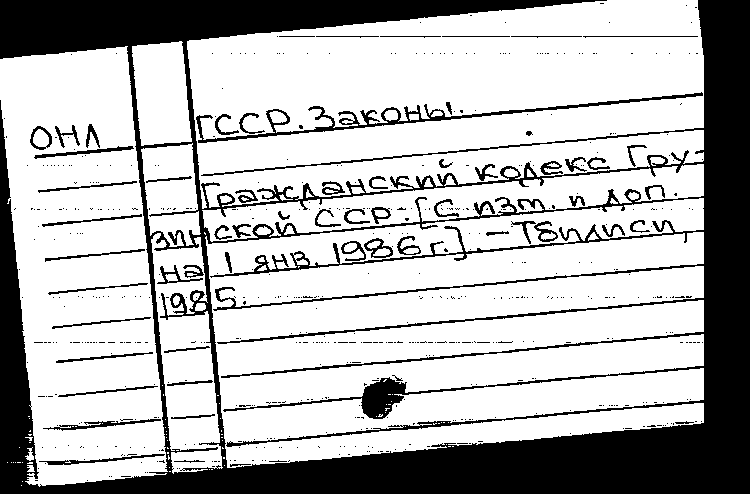 ОНЛ ГССР. Законы.
Гражданский кодекс Гру-
зинской ССР. [С изм. и доп.
на 1 янв. 1986 г.]. – Тбилиси,
1985.